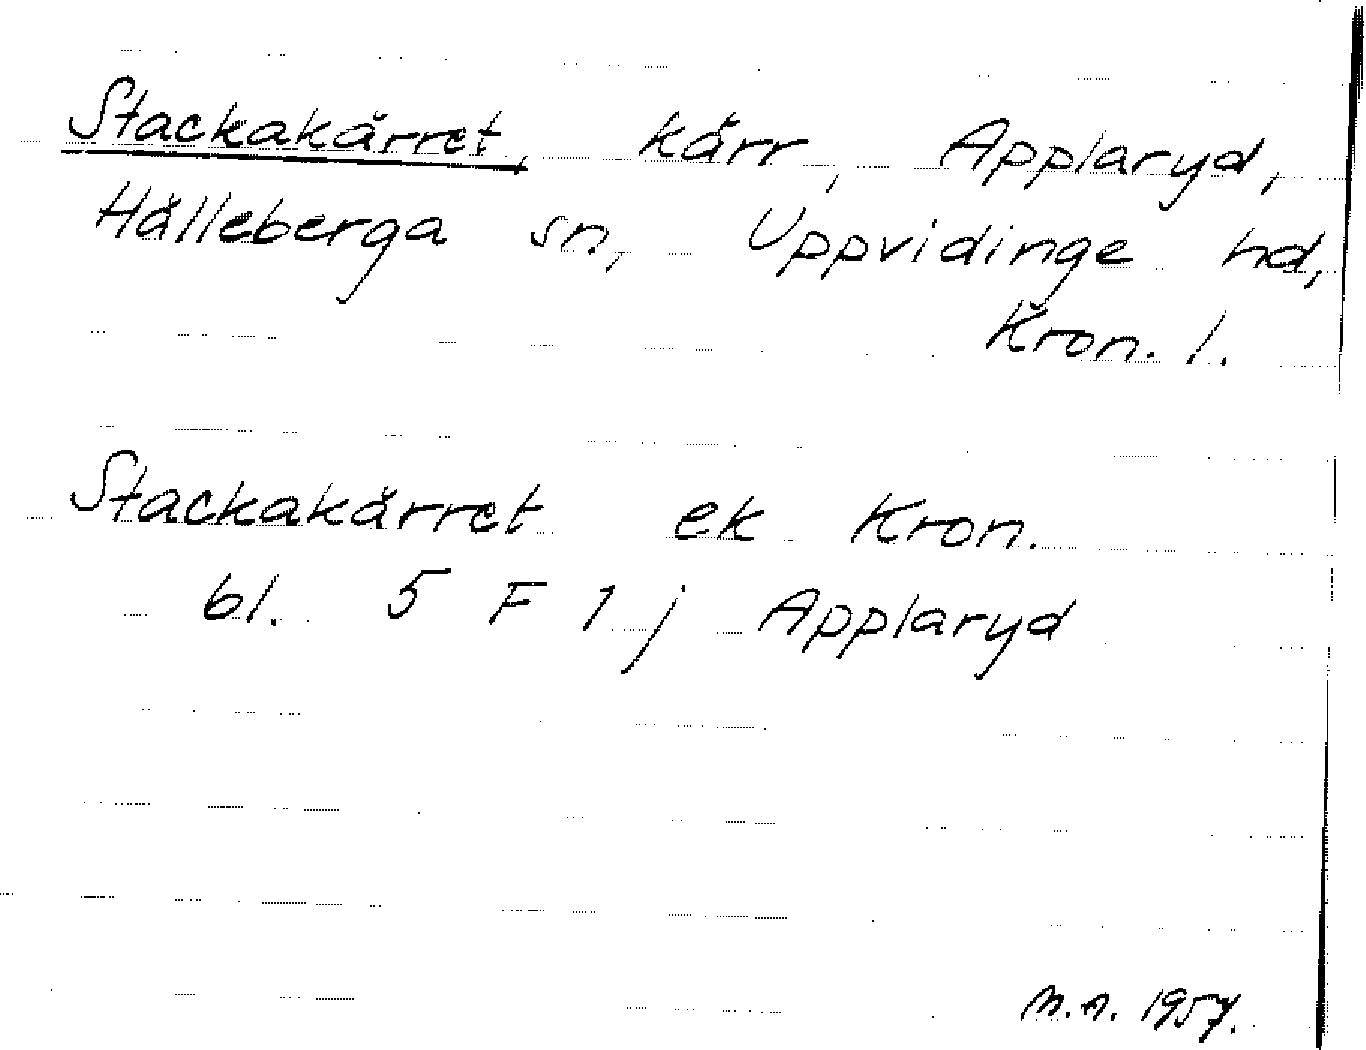 Stackakärret, kärr, Applaryd,
Hälleberga sn, Uppvidinge hd,
Kron. l.
Stackakärret ek Kron.
bl. 5 F 1 j Applaryd
M.A. 1957.